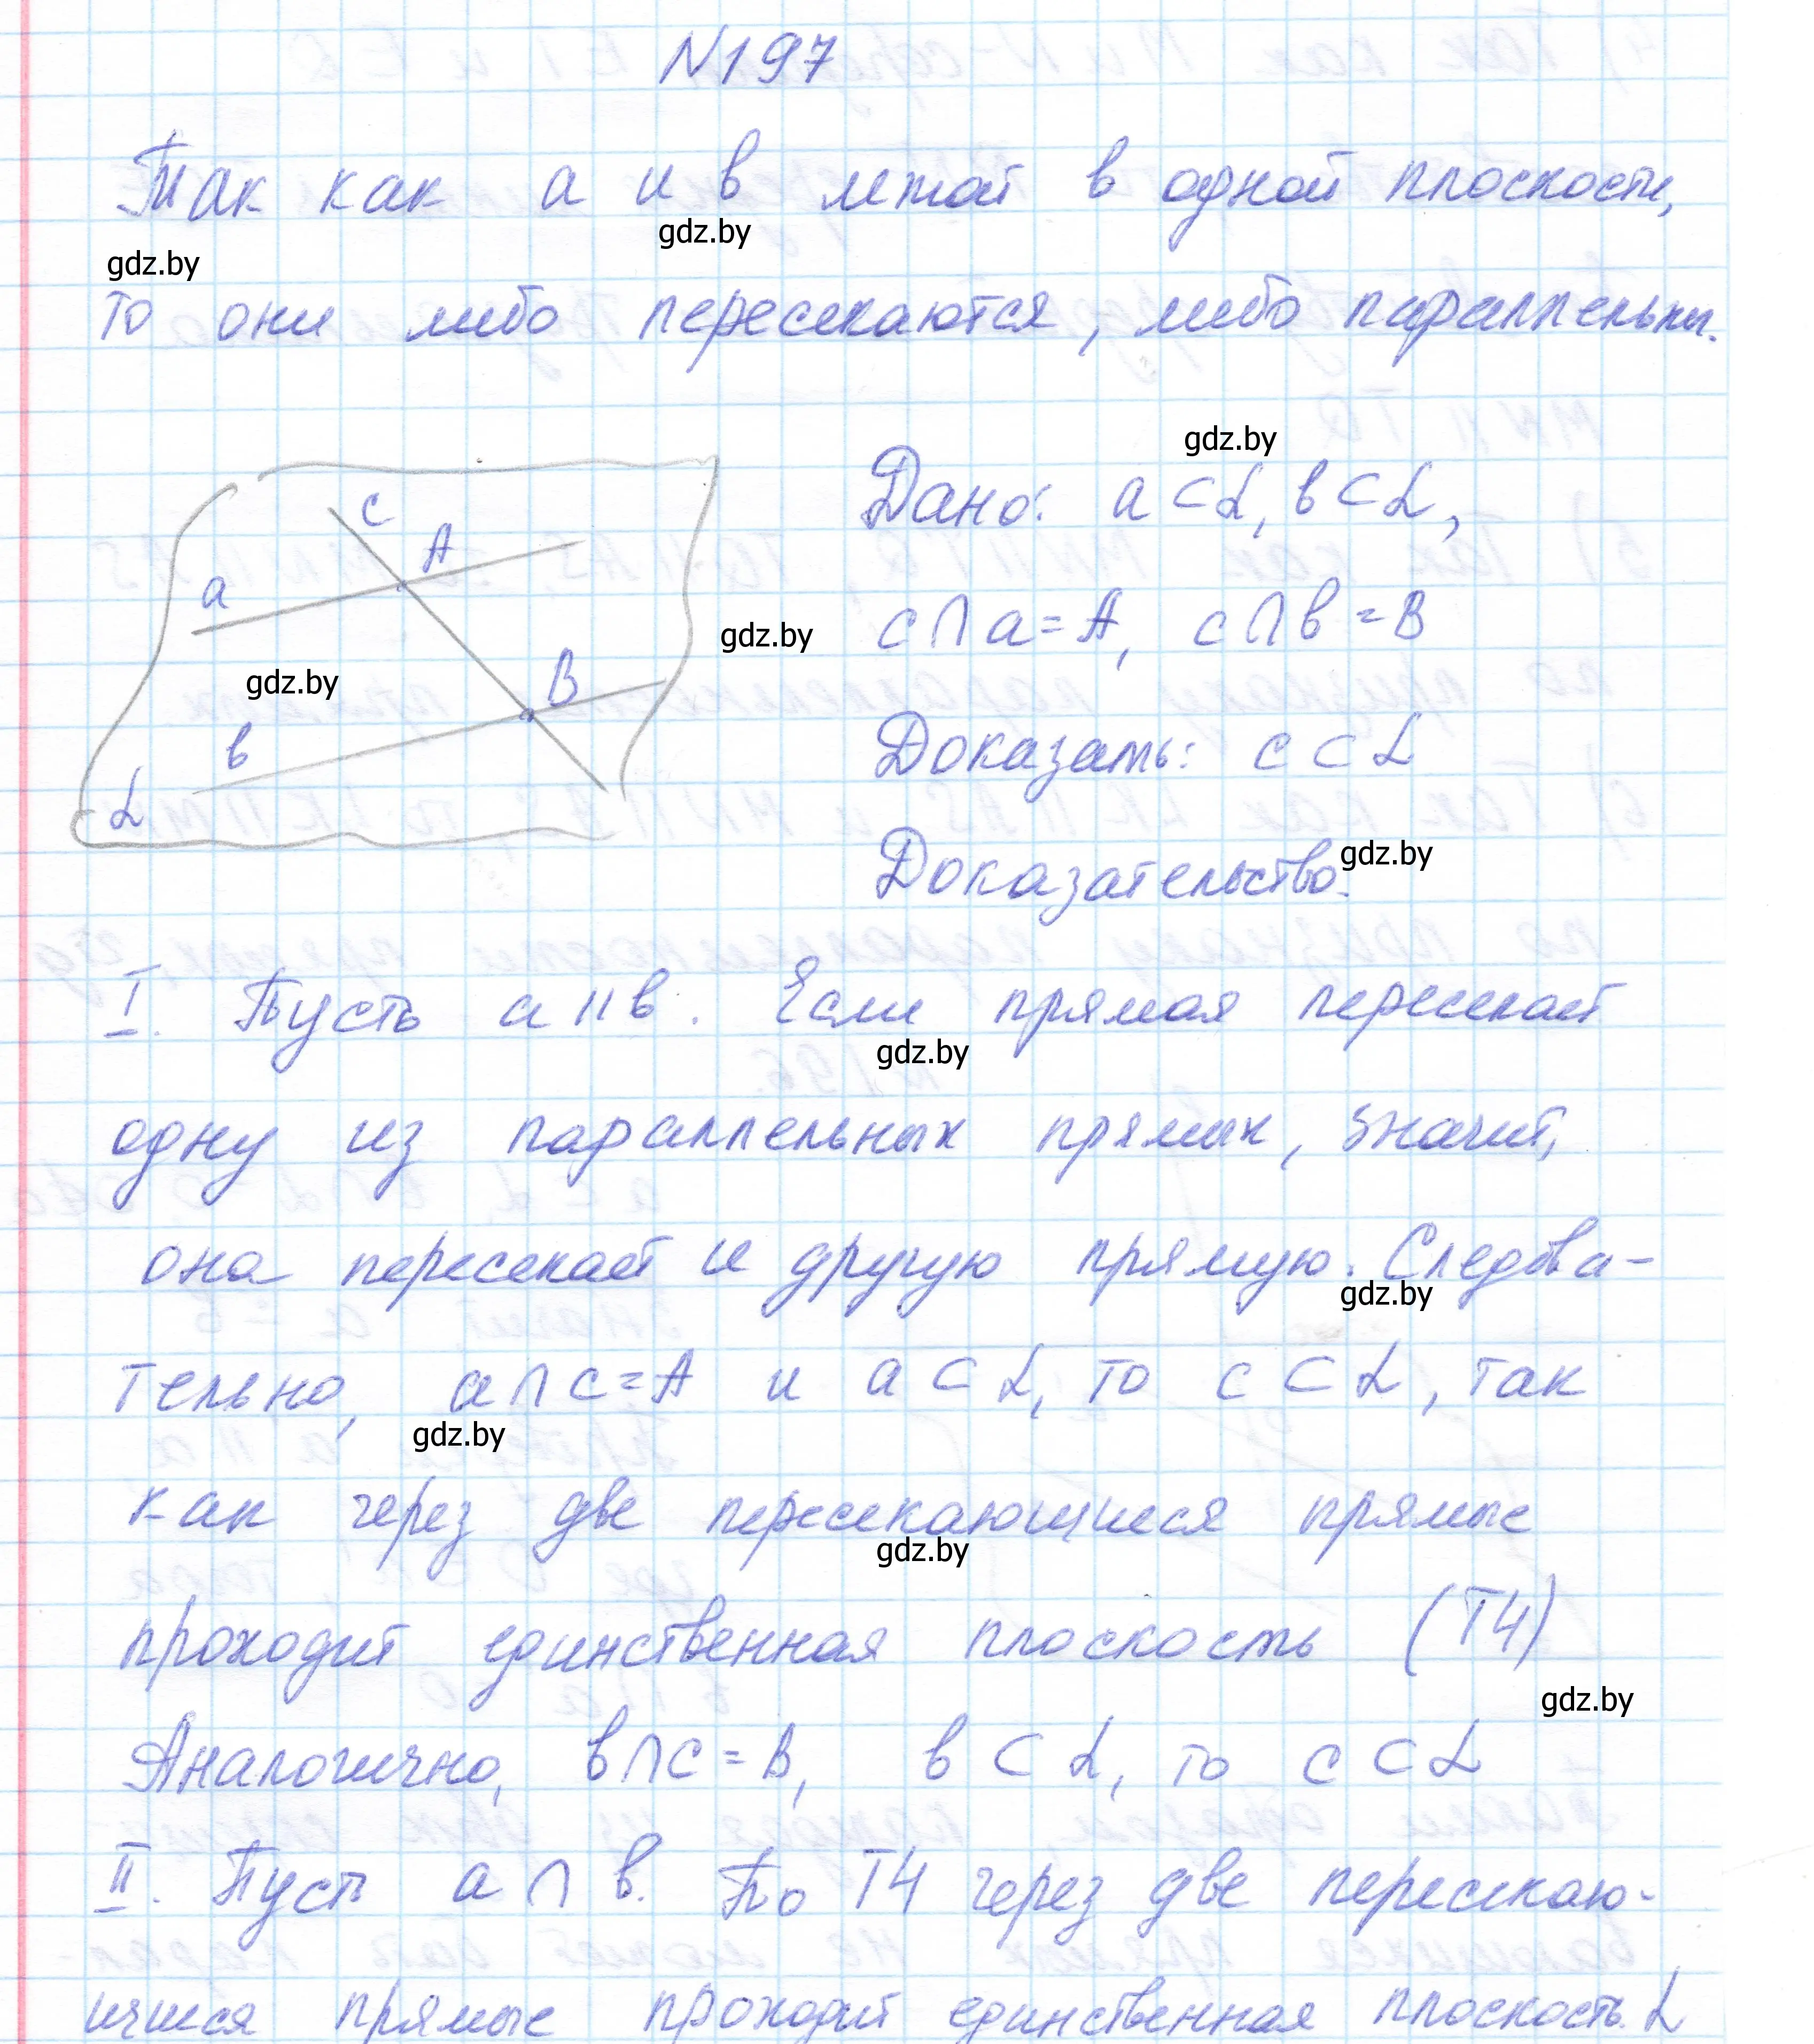 N197
Так как a и в лежат в одной плоскости,
gdz.by
gdz.by
то они либо пересекаются, либо параллельны.
gdz.by
Дано: a ⊂ α, в ⊂ α,
c
A
a
c ∩ a = A, c ∩ в = B
gdz.by
gdz.by
B
в
Доказать: c ⊂ α
α
Доказательство.
gdz.by
I. Пусть a || в. Если прямая пересекает
gdz.by
одну из параллельных прямых, значит,
она пересекает и другую прямую. Следова-
gdz.by
тельно, a ∩ c = A и a ⊂ α, то c ⊂ α, так
gdz.by
как через две пересекающиеся прямые
gdz.by
проходит единственная плоскость (Т4)
gdz.by
Аналогично, в ∩ c = B, в ⊂ α, то c ⊂ α
II. Пусть a ∩ в. По Т4 через две пересекаю-
щиеся прямые проходит единственная плоскость α